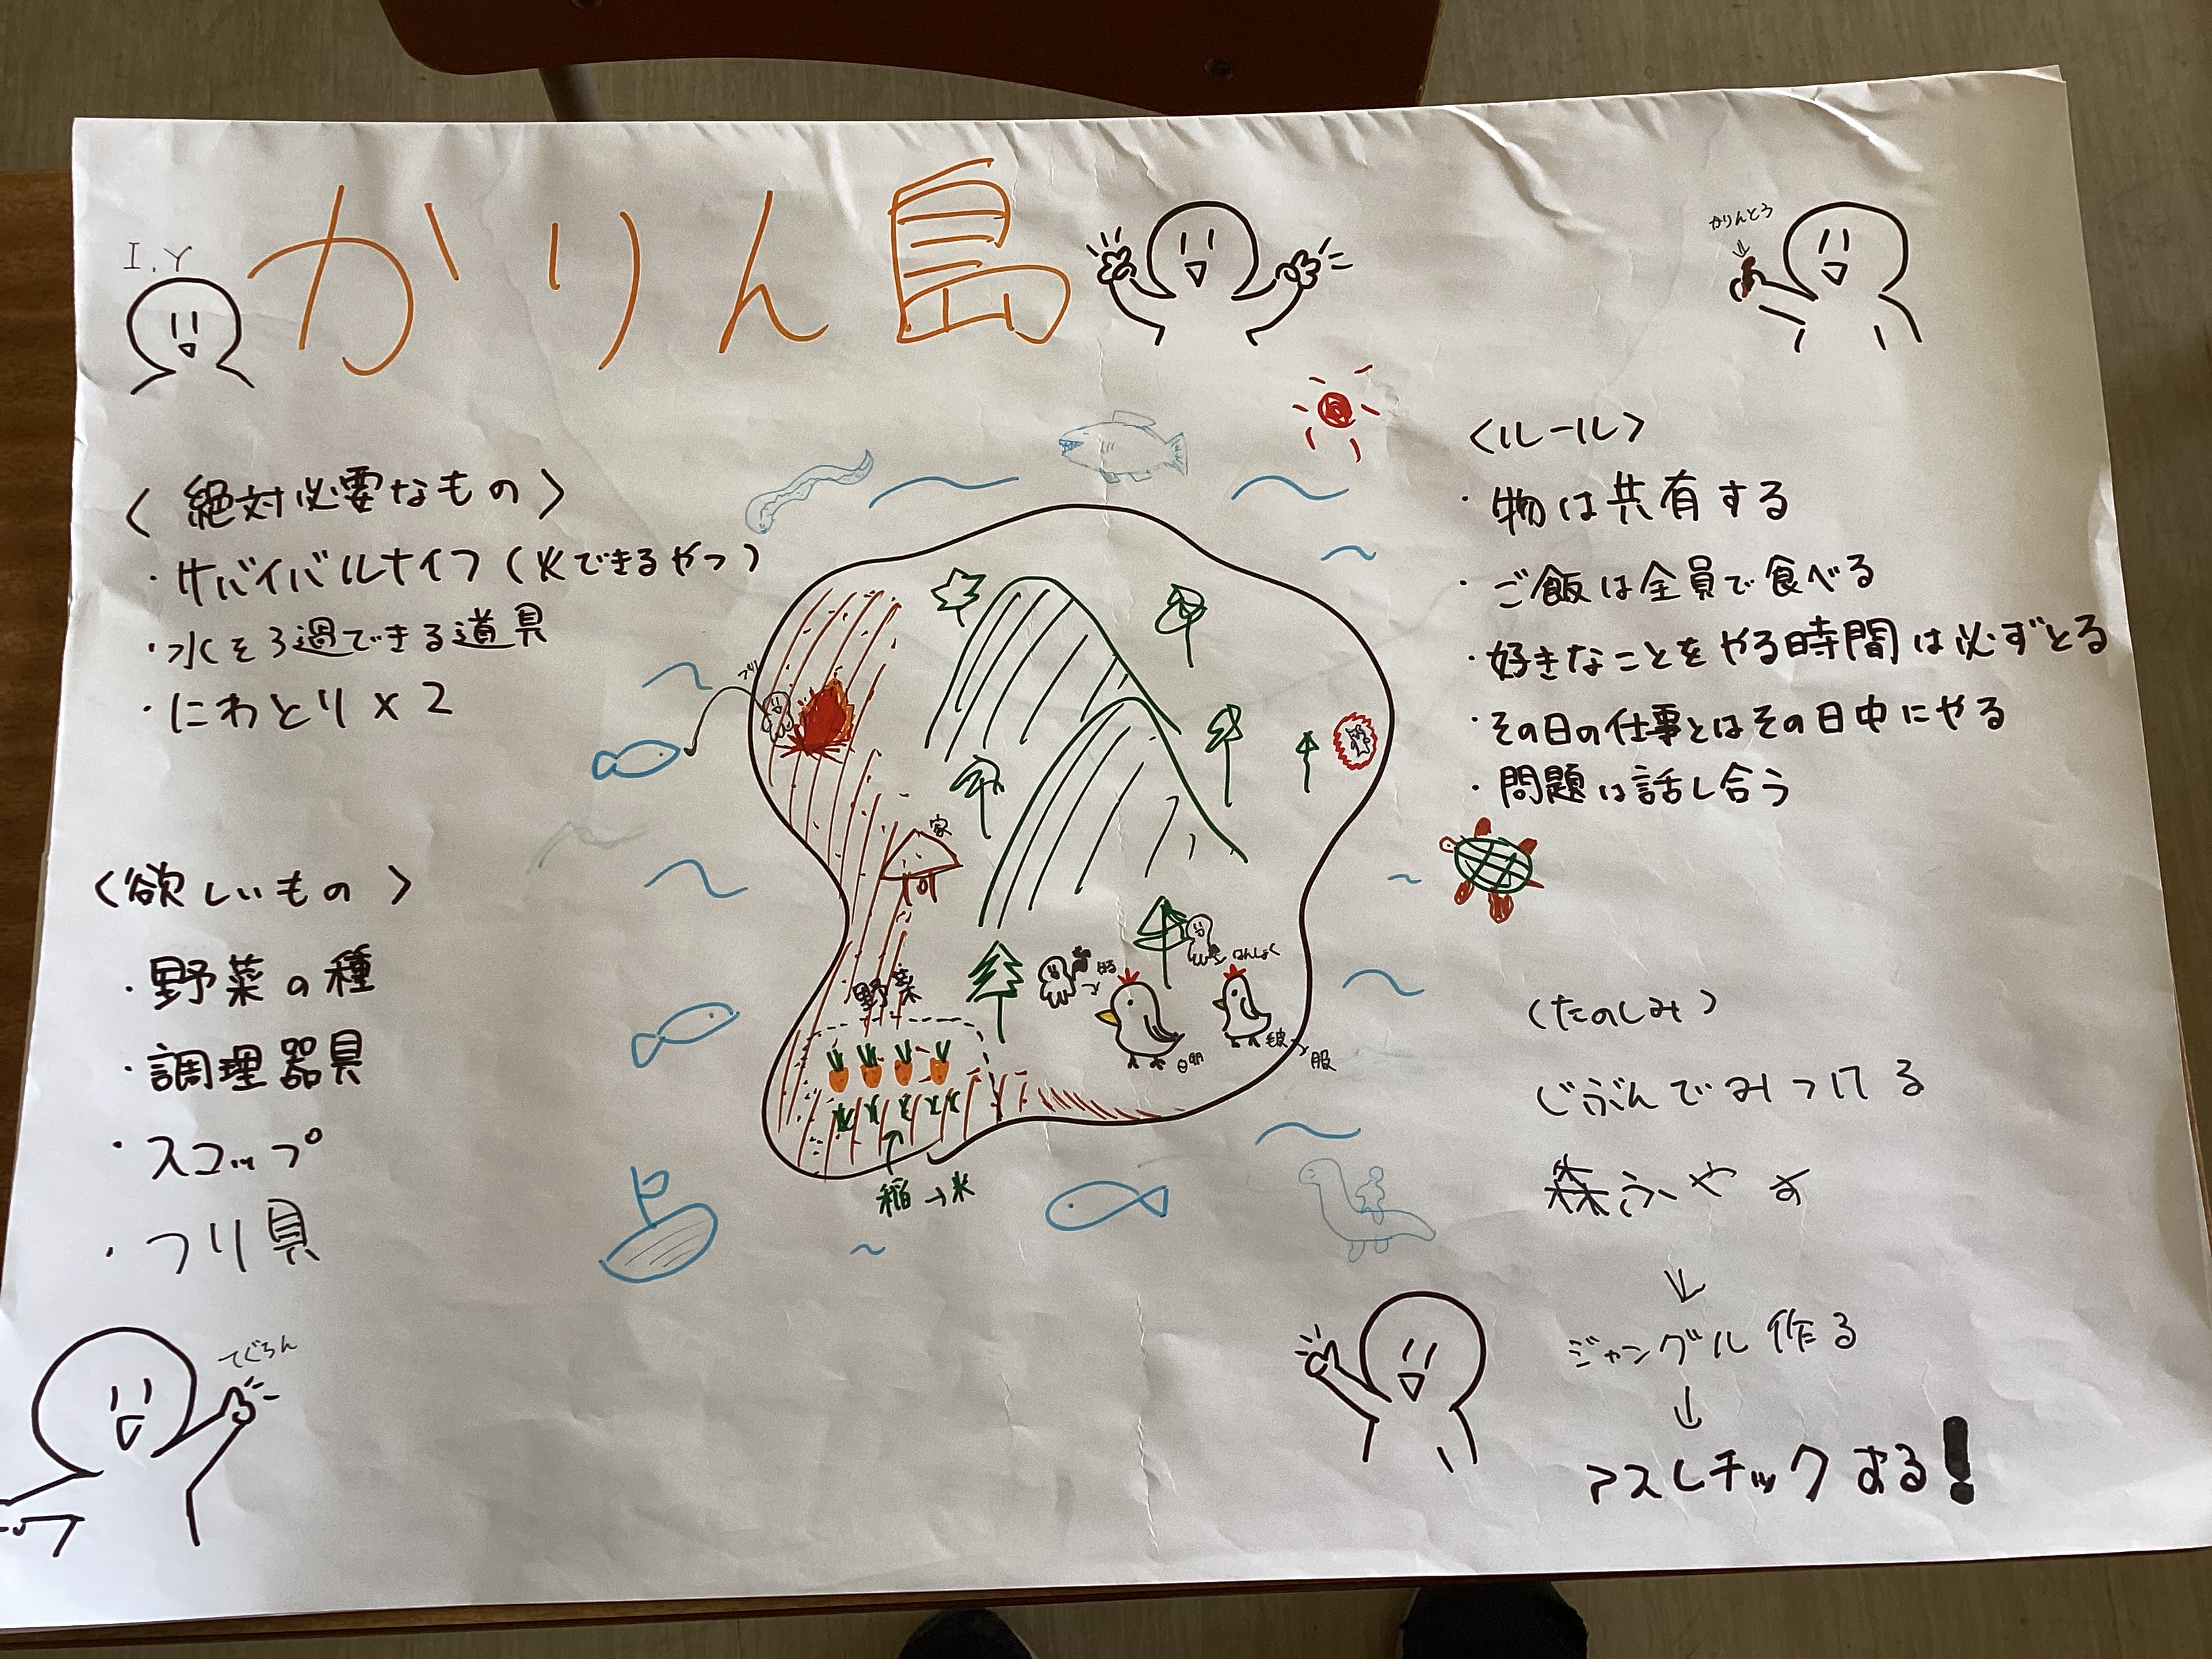 I.Y
かりん島
かりんとう
<絶対必要なもの>
・サバイバルナイフ(火できるやつ)
・水をろ過できる道具
・にわとり×2
<欲しいもの>
・野菜の種
・調理器具
・スコップ
・つり具
てぐろん
<ルール>
・物は共有する
・ご飯は全員で食べる
・好きなことをやる時間は必ずとる
・その日の仕事とはその日中にやる
・問題は話し合う
<たのしみ>
じぶんでみつける
森ふやす
↓
ジャングル作る
↓
アスレチックする!
家
野菜
稲→米
はんしょく
卵
服